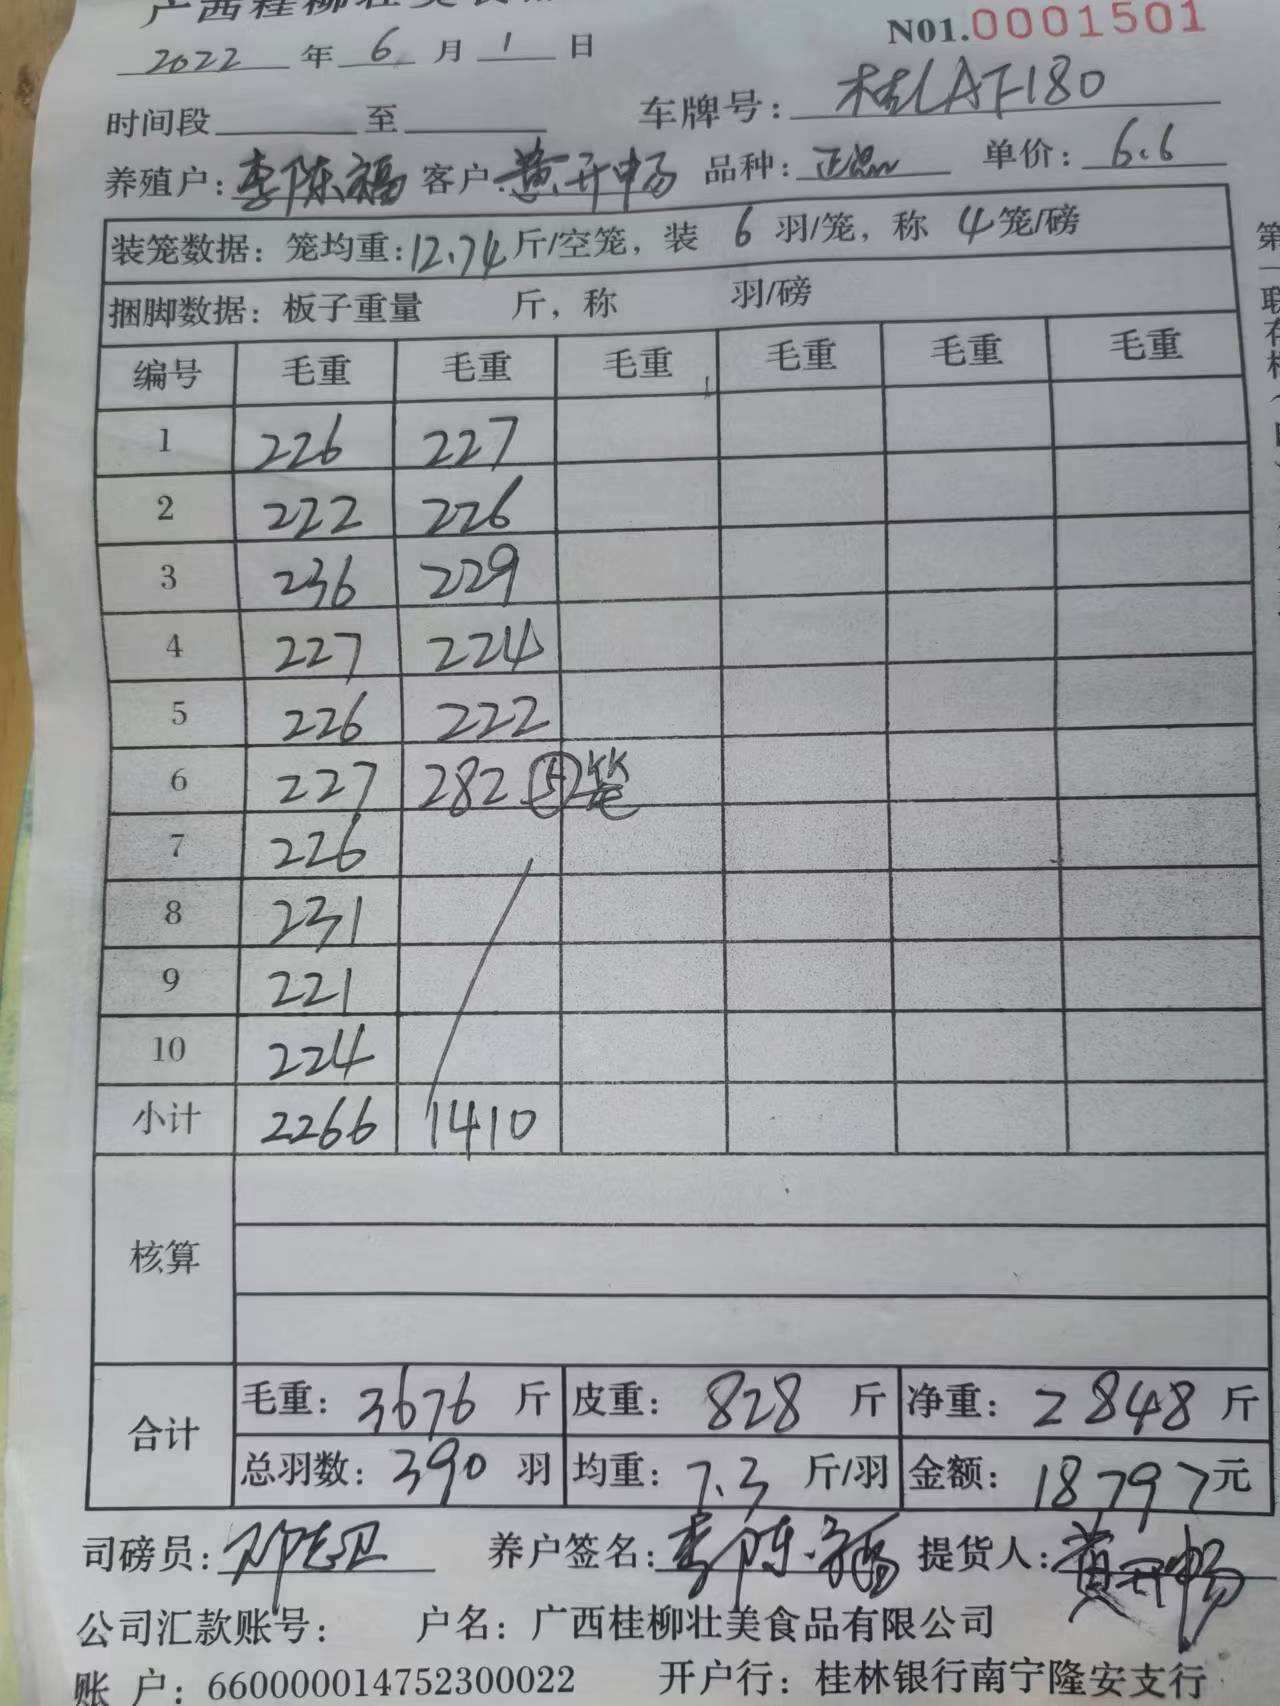 N01.0001501
2022 年 6 月 1 日
时间段 至 车牌号: 桂AF180
养殖户: 李陈福 客户: 黄开畅 品种: 单价: 6.6
装笼数据: 笼均重: 12.74 斤/空笼, 装 6 羽/笼, 称 4 笼/磅
捆脚数据: 板子重量 斤, 称 羽/磅
编号 毛重 毛重 毛重 毛重 毛重 毛重
1 226 227
2 222 226
3 236 229
4 227 224
5 226 222
6 227 282 5笼
7 226
8 231
9 221
10 224
小计 2266 1410
核算
合计 毛重: 3676 斤 皮重: 828 斤 净重: 2848 斤
总羽数: 390 羽 均重: 7.3 斤/羽 金额: 18797元
司磅员: 养户签名: 李陈福 提货人: 黄开畅
公司汇款账号: 户名: 广西桂柳壮美食品有限公司
账 户: 660000014752300022 开户行: 桂林银行南宁隆安支行
第一联存根